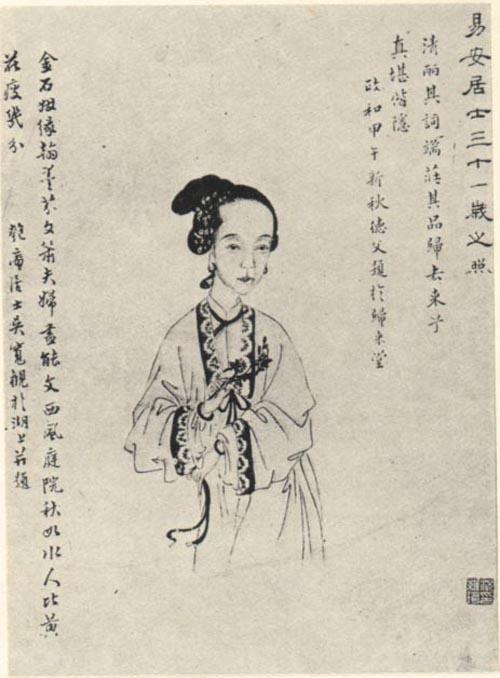 易安居士三十一歲之照
清丽其詞端莊其品歸去来兮
真堪偕隱
政和甲午新秋德父題於歸来堂
金石姻緣翰墨芬文簫夫婦盡能文西風庭院秋如水人比黃
花瘦幾分 匏庵居士吳寬觀於湖上并題